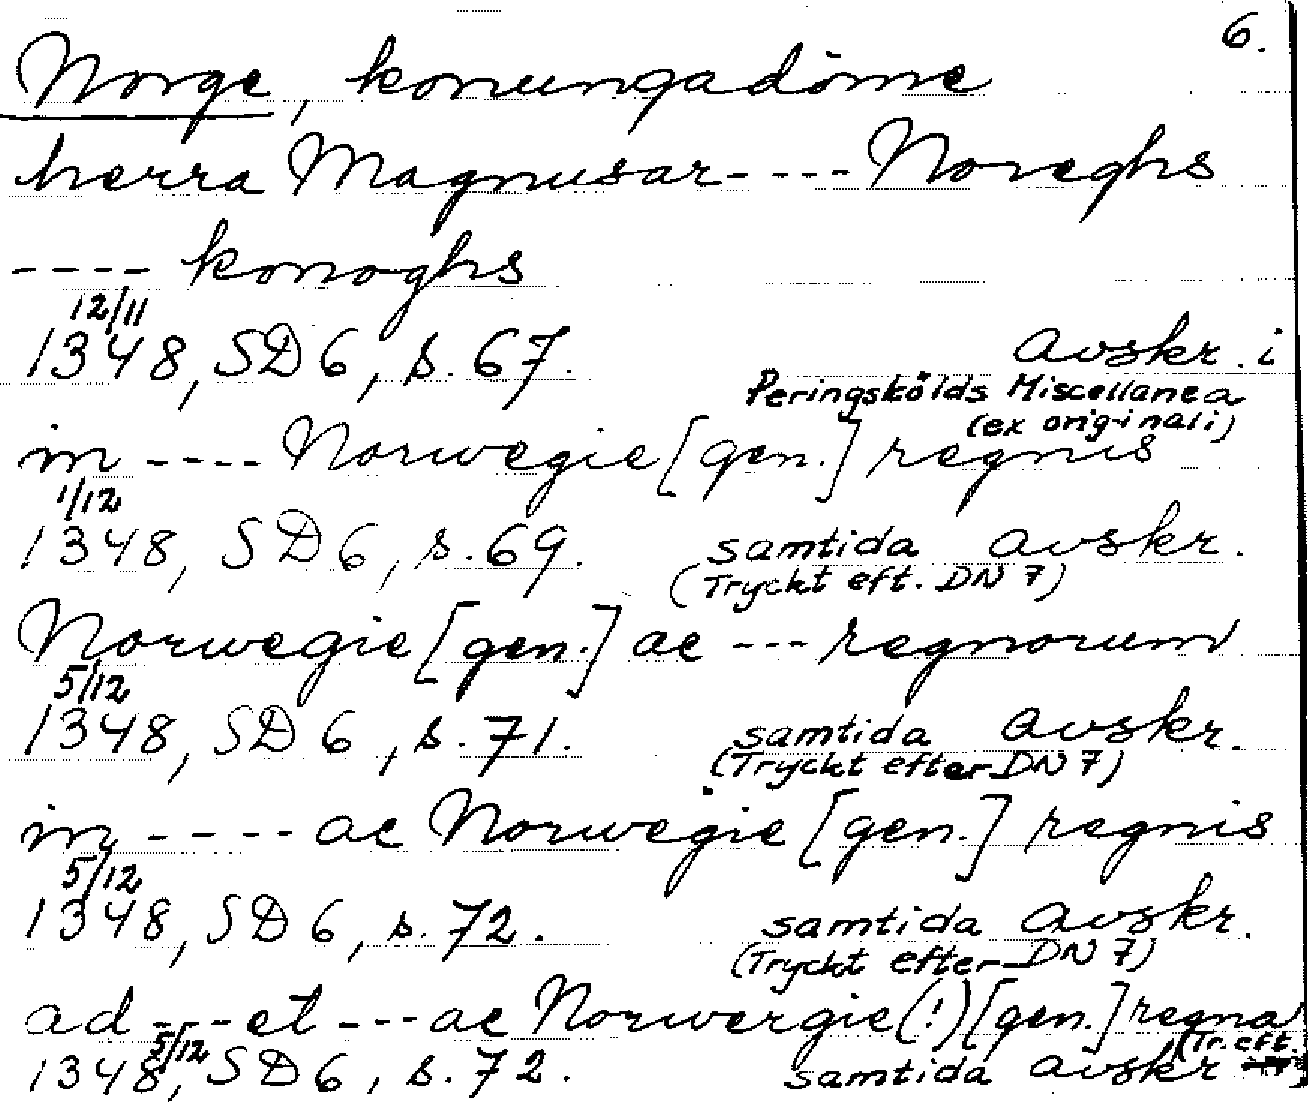 6.
Norge, konungadöme
herra Magnusar---- Noreghs
---- konoghs
12/11
1348, SD 6, s. 67. avskr. i
Peringskölds Miscellanea
(ex originali)
in ---- Norwegie [gen.] regnis
1/12
1348, SD 6, s. 69. samtida avskr.
(Tryckt eft. DN 7)
Norwegie [gen.] ac --- regnorum
5/12
1348, SD 6, s. 71. samtida avskr.
(Tryckt efter DN 7)
in ---- ac Norwegie [gen.] regnis
5/12
1348, SD 6, s. 72. samtida avskr.
(Tryckt efter DN 7)
ad --- et --- ac Norwergie (!) [gen.] regna
5/12 (Tr. eft.
1348, SD 6, s. 72. samtida avskr